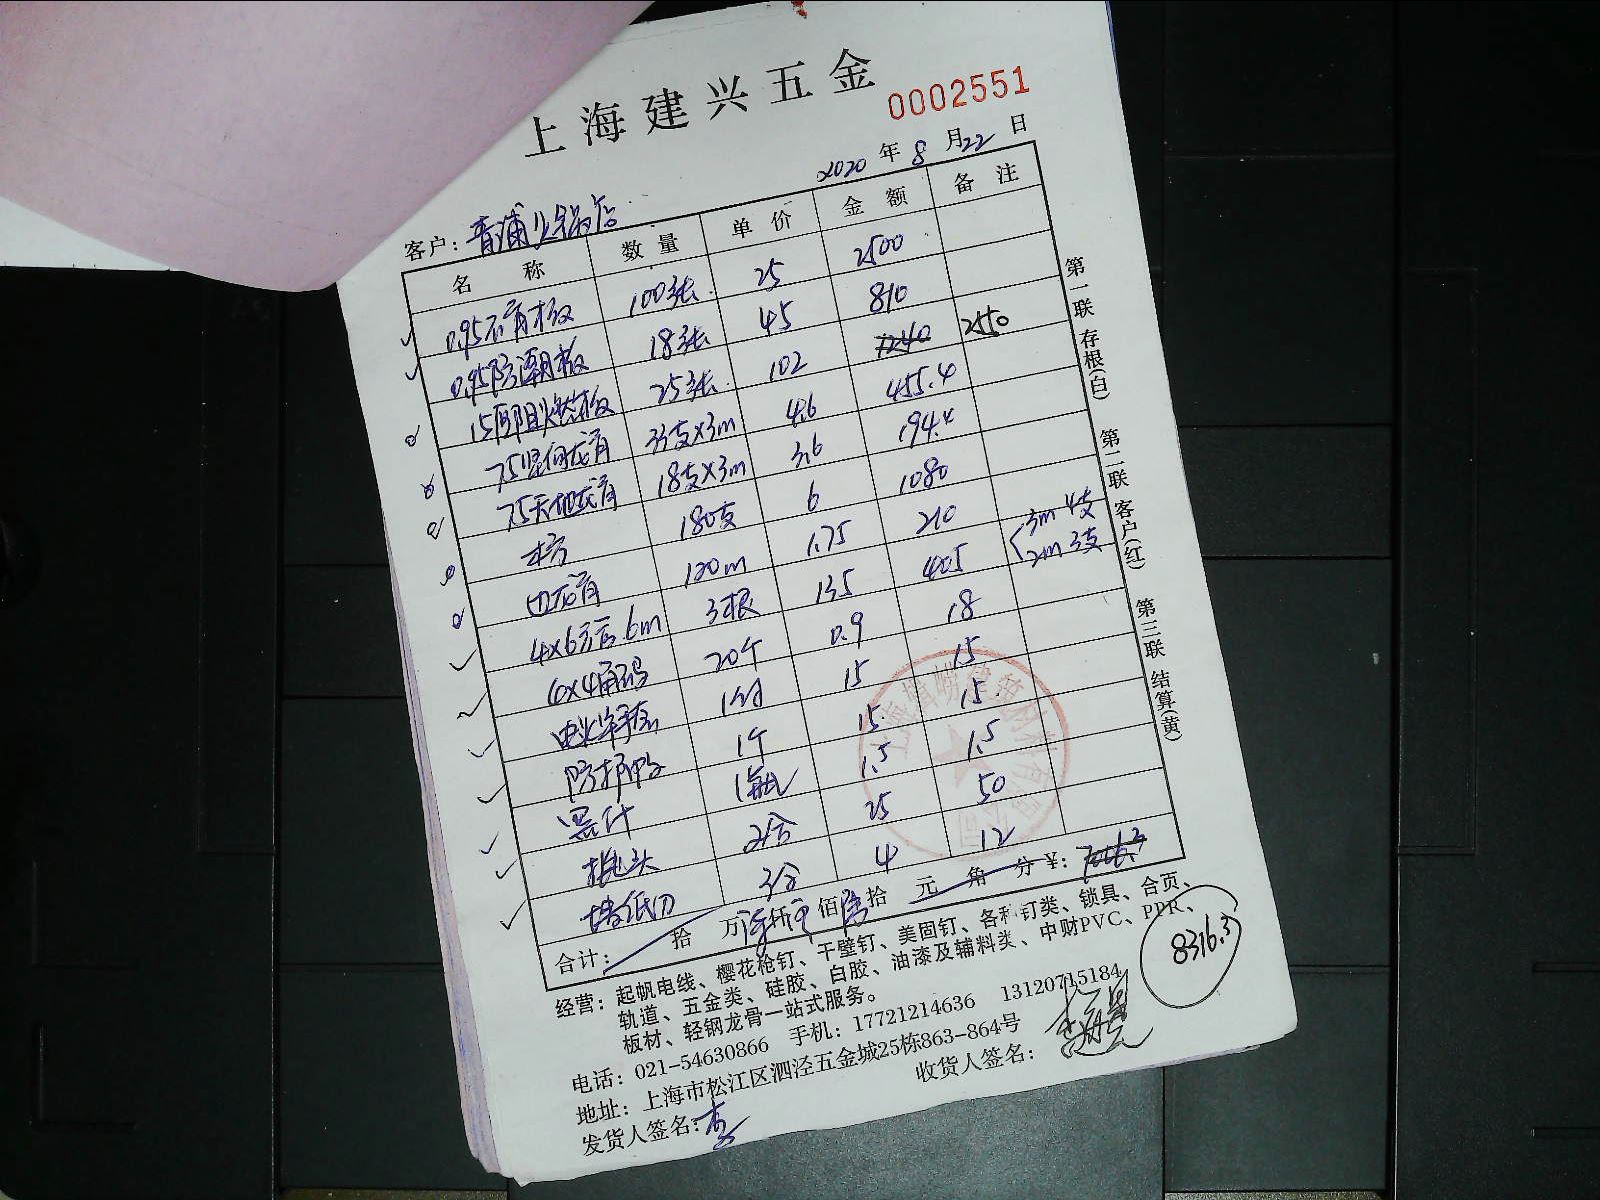 上海建兴五金
0002551
2020年8月22日
客户：青浦火锅店
名称 数量 单价 金额 备注
0.95石膏板 100张 25 2500
0.95防潮板 18张 45 810
15厚阻火板 25张 102 2550
75竖向龙骨 33支×3m 4.6 455.4
75天地龙骨 18支×3m 3.6 194.4
木方 180支 6 1080
120m 1.75 210
4×6方 6m 3根 135 405 3m 4支 2m 3支
角码 20个 0.9 18
15 15
1个 15 15
墨汁 1瓶 1.5 1.5
批头 2合 25 50
墙纸刀 3 4 12
合计： 拾 万 仟 佰 拾 元 角 分 ¥：
8316.3
经营：起帆电线、樱花枪钉、干壁钉、美固钉、各种钉类、锁具、合页、
轨道、五金类、硅胶、白胶、油漆及辅料类、中财PVC、PPR、
板材、轻钢龙骨一站式服务。
电话：021-54630866 手机：17721214636 13120715184
地址：上海市松江区泗泾五金城25栋863-864号
发货人签名： 收货人签名：
第一联 存根(白) 第二联 客户(红) 第三联 结算(黄)